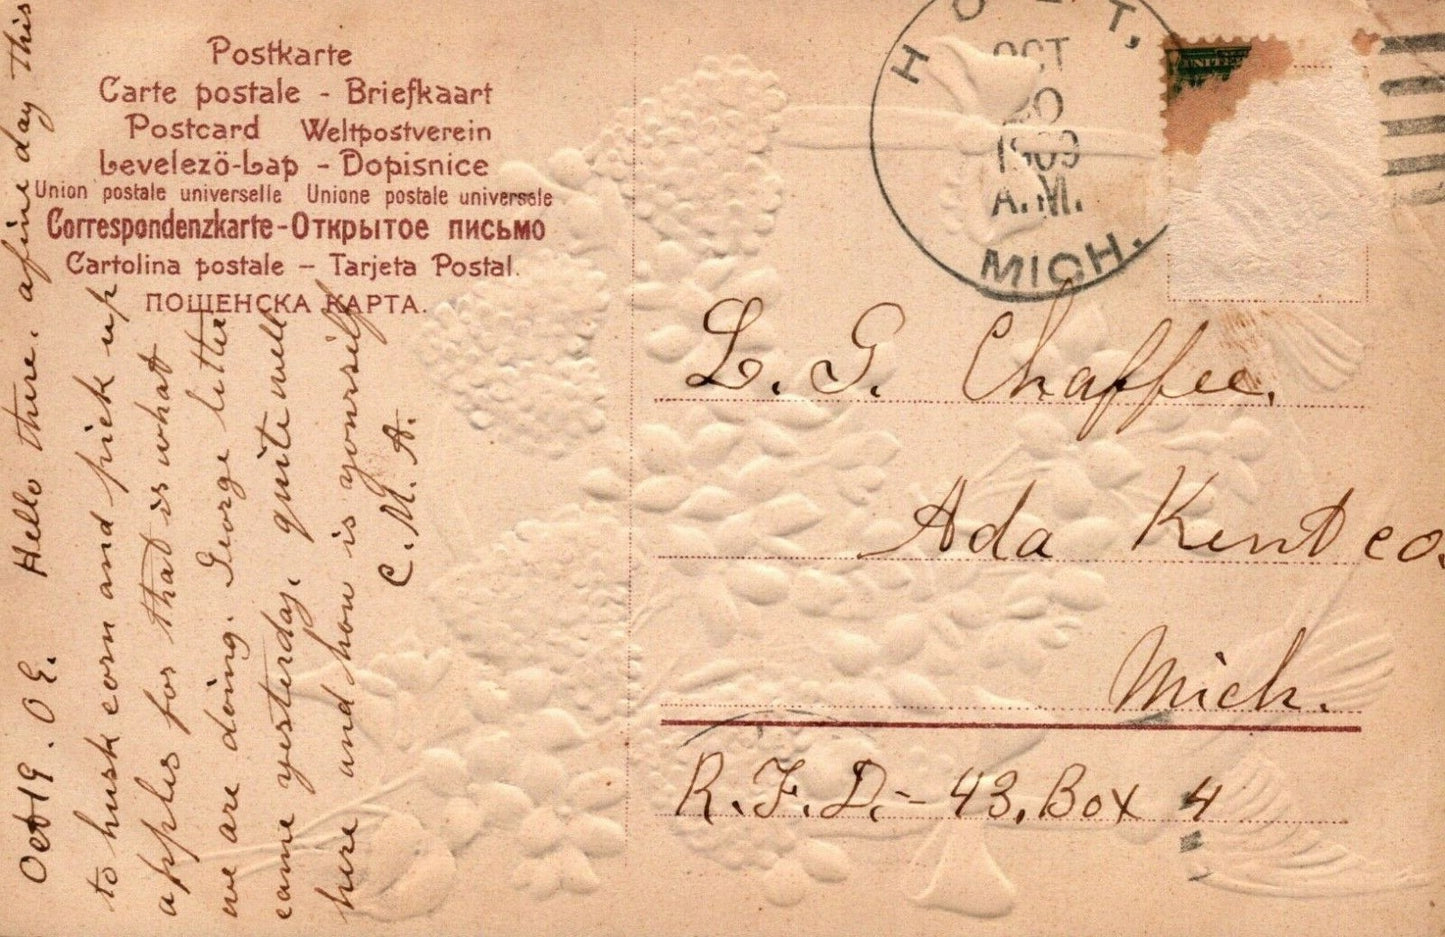 Postkarte
Carte postale - Briefkaart
Postcard Weltpostverein
Levelezö-Lap - Dopisnice
Union postale universelle Unione postale universale
Correspondenzkarte - Открытое письмо
Cartolina postale - Tarjeta Postal.
ПОЩЕНСКА КАРТА.
HOLT,
OCT
20
1909
A.M.
MICH.
UNITED
L. G. Chaffee.
Ada Kent co.
Mich.
R.F.D.- 43. Box 4
Oct 19. 09. Hello there. a fine day this
to husk corn and pick up
apples for that is what
we are doing. George letter
came yesterday. quite well
here and how is yourself
C. M. A.